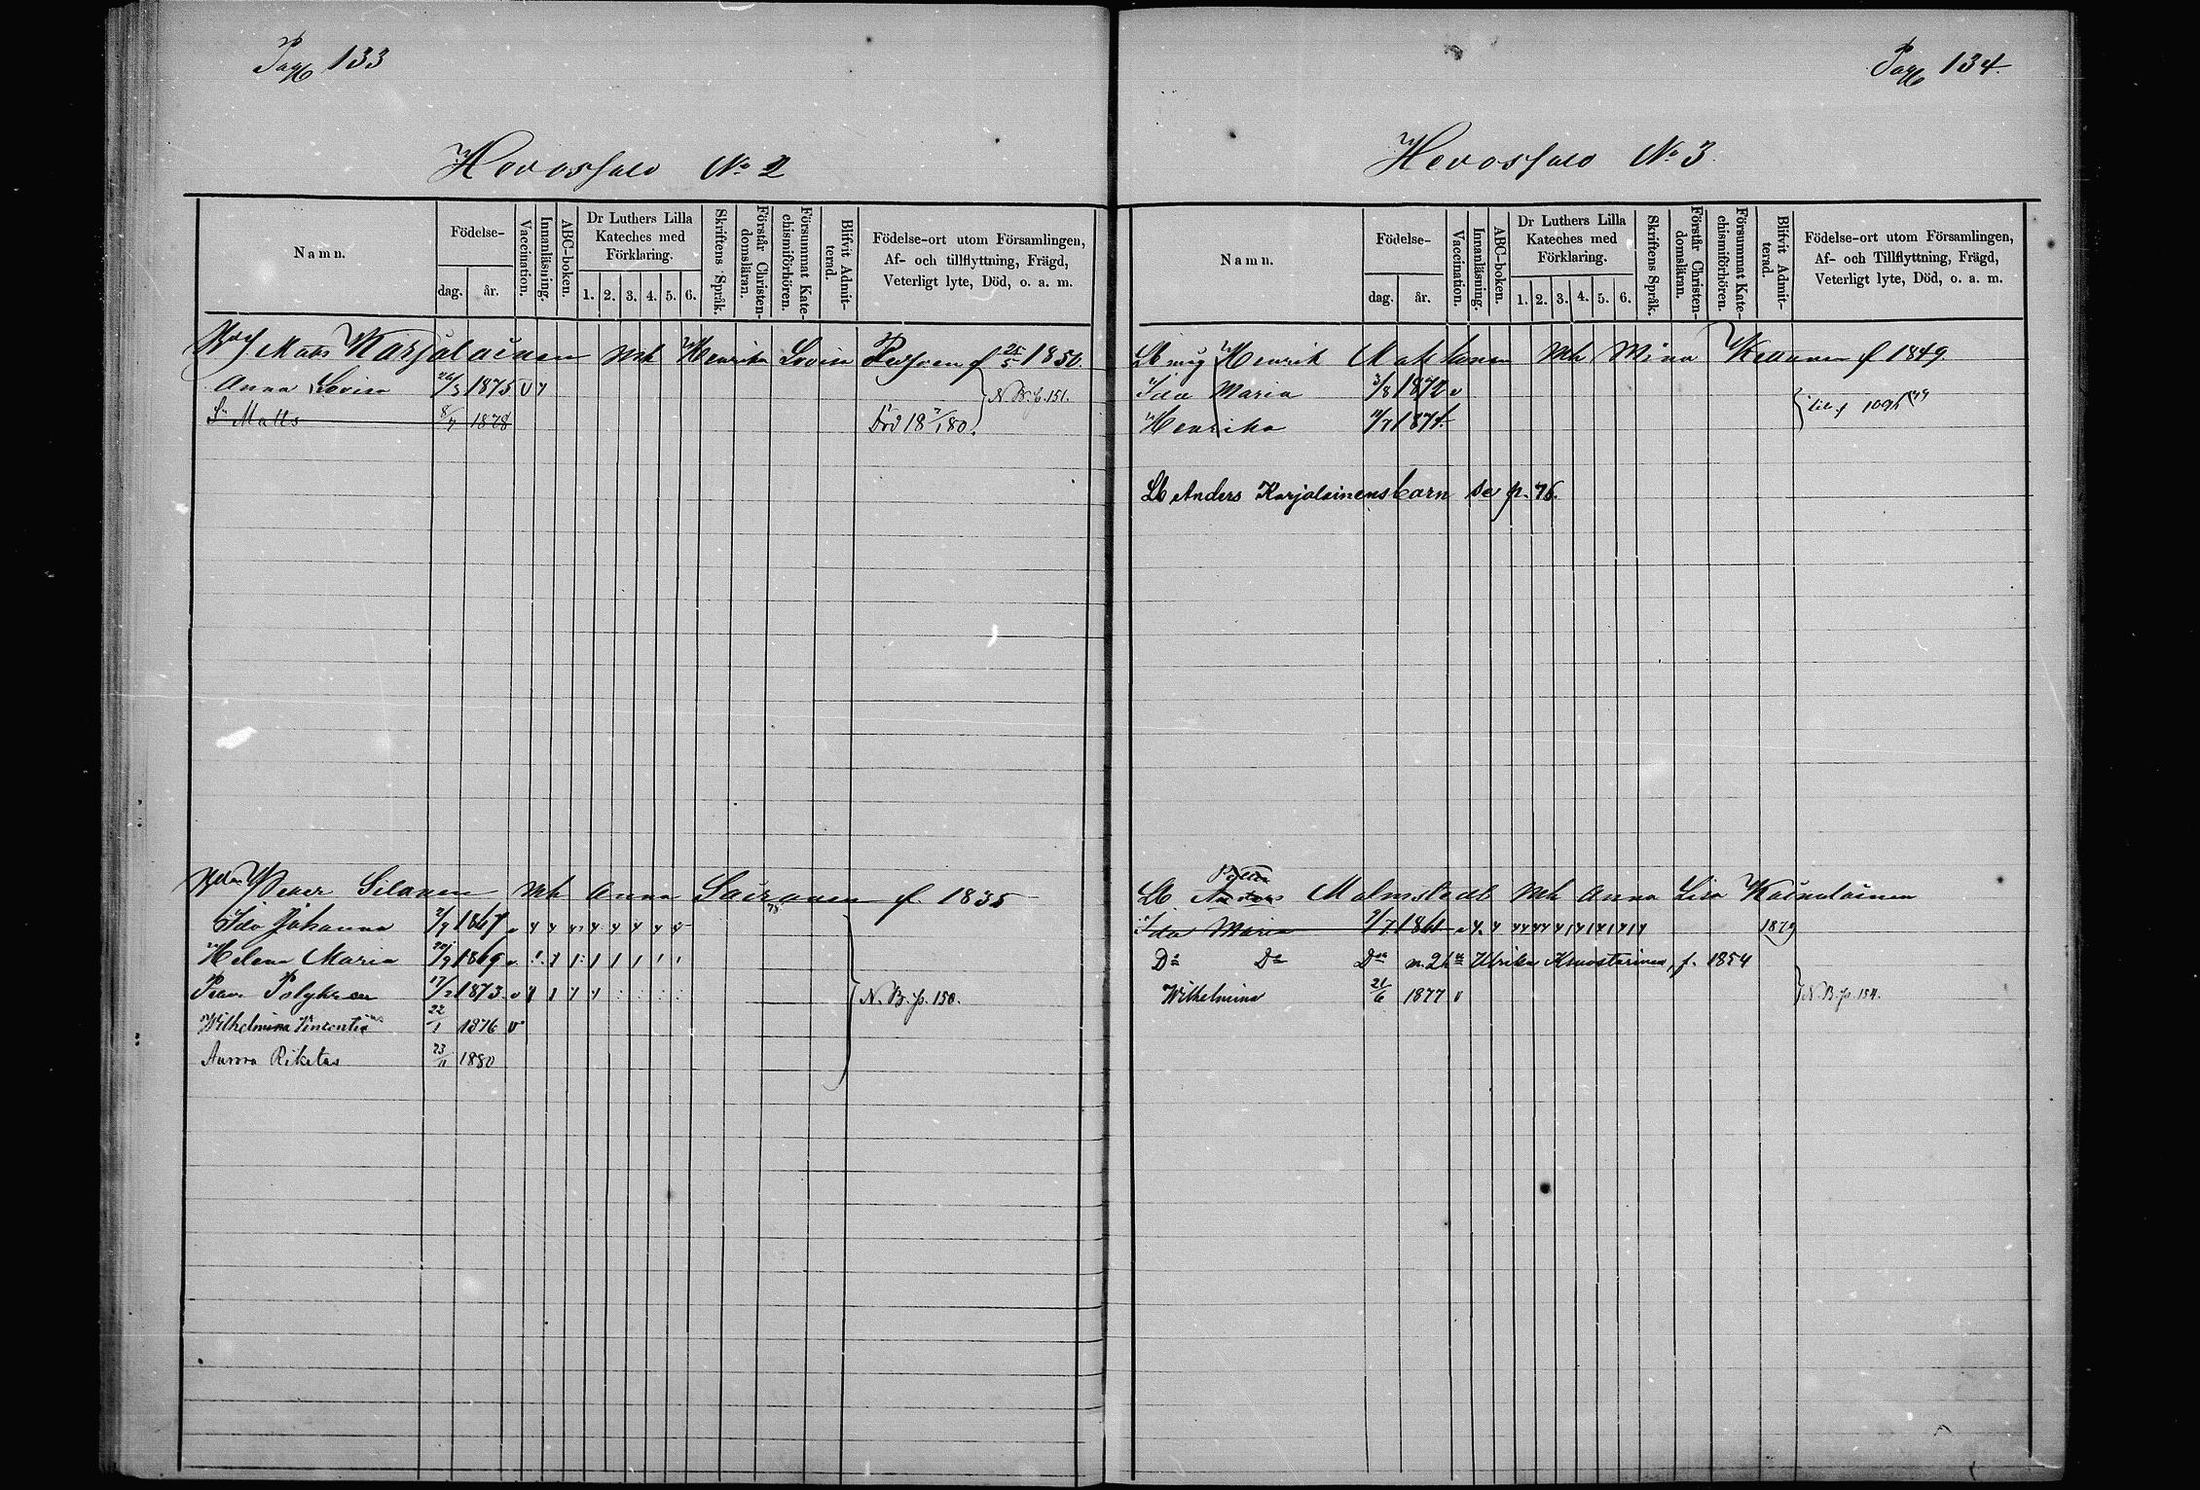 Pag 133
Hevossalo No 2
Namn.
Födelse-
dag.
år.
Vaccination.
Innanläsning.
ABC-boken.
Dr Luthers Lilla
Kateches med
Förklaring.
1. 2. 3. 4. 5. 6.
Skriftens Språk.
Förstår Christen-
domsläran.
Försummat Kate-
chismiförhören.
Blifvit Admit-
terad.
Födelse-ort utom Församlingen,
Af- och tillflyttning, Frägd,
Veterligt lyte, Död, o. a. m.
Matts Karjalainen Mh Henrika Lovisa f 25/5 1850.
Anna Lovisa 26/3 1875 v
N B. p. 151.
Sn Matts 8/4 1878 Död 18 7/1 80.
Peter Silanen Mh Anna Sairanen f 1835
78
Ida Johanna 2/9 1867
Helena Maria 20/9 1869 v
17/2 1873 v
N. B. p. 150.
Wilhelmina 22/1 1876 v
Aurora Riketas 23/11 1880
Pag 134.
Hevossalo No 3.
Namn.
Födelse-
dag.
år.
Vaccination.
Innanläsning.
ABC-boken.
Dr Luthers Lilla
Kateches med
Förklaring.
1. 2. 3. 4. 5. 6.
Skriftens Språk.
Förstår Christen-
domsläran.
Försummat Kate-
chismiförhören.
Blifvit Admit-
terad.
Födelse-ort utom Församlingen,
Af- och Tillflyttning, Frägd,
Veterligt lyte, Död, o. a. m.
Lb måg Henrik Makkonen Mh Mina f 1849
Ida Maria 3/8 1872 v
Henrika 11/7 1874
Lb Anders Karjalainens barn se p. 76.
Lb Malmstedt Mh Anna Lisa Kainulainen
Ida Maria 1861 1879
Do Do Don m. 2 h Ulrika f. 1854
Wilhelmina 21/6 1877 v
N. B. p. 154.